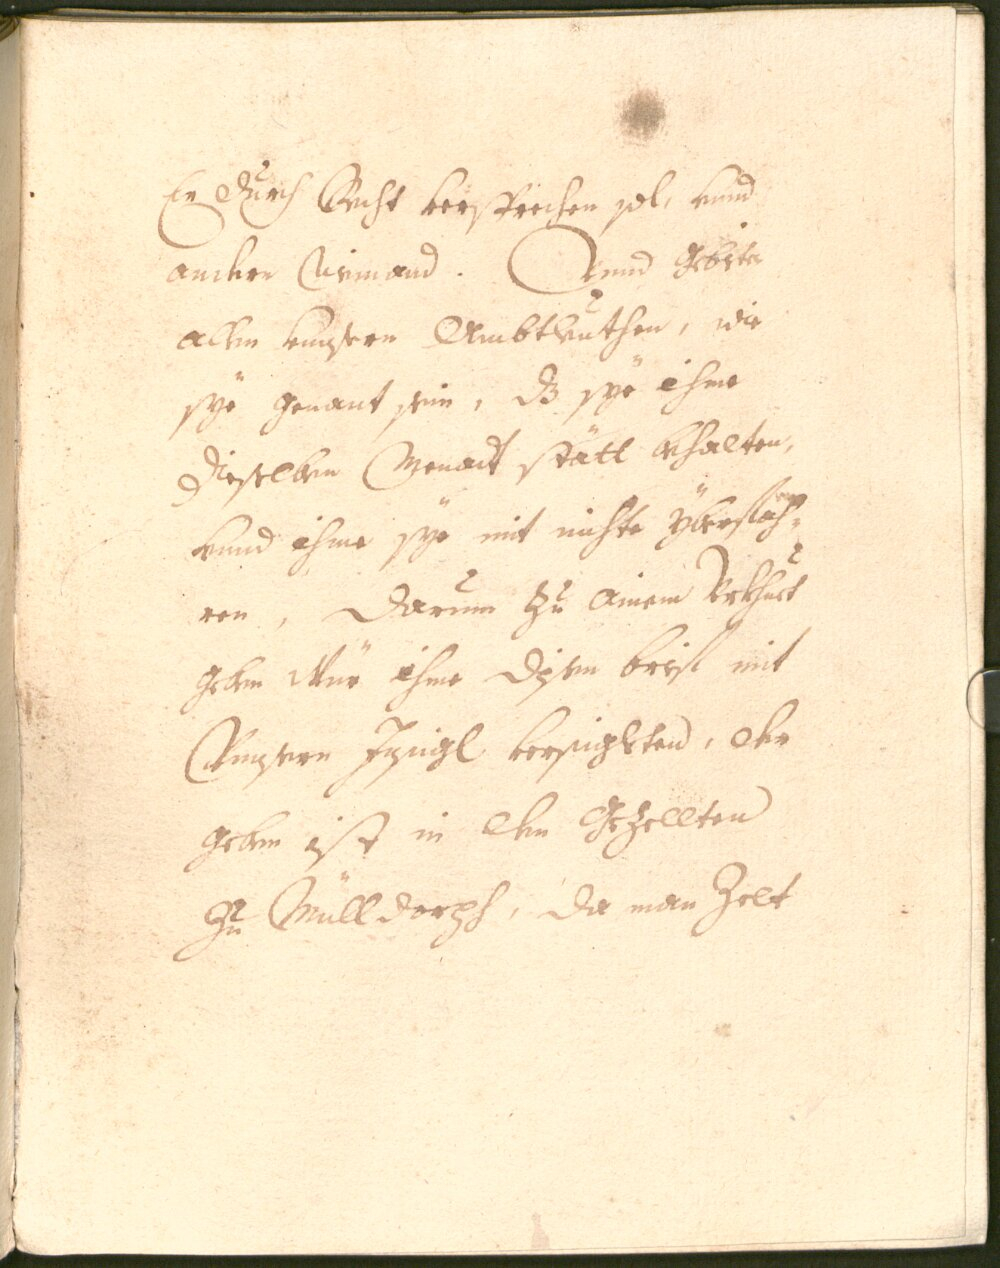 Er durch Recht versprechen sol, vnnd
ander Niemand. Vnnd gebiten
allen vnnsern Ambtleuthen, wie
sÿe genant sein, dz sÿe ihme
dieselben stätt behalten,
vnnd ihme sÿe mit nichte ÿberfah¬
ren, darumb zu ainem Vrkhundt
geben Wür ihme disen brief mit
Vnnsern Insigl versigleten, der
geben ist in den Gezellten
zu Mülldorph, da man zelt